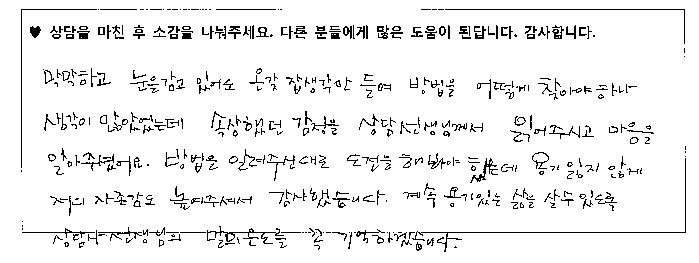 ♥ 상담을 마친 후 소감을 나눠주세요. 다른 분들에게 많은 도움이 된답니다. 감사합니다.
막막하고 눈을감고 있어도 온갖 잡생각만 들며 방법을 어떻게 찾아야하나
생각이 많았었는데 속상했던 감정을 상담선생님께서 읽어주시고 마음을
알아주셨어요. 방법을 알려주신대로 도전을 해봐야 하는데 용기 잃지 않게
저의 자존감도 높여주셔서 감사했습니다. 계속 용기있는 삶을 살수있도록
상담사선생님의 말의온도를 꼭 기억하겠습니다.